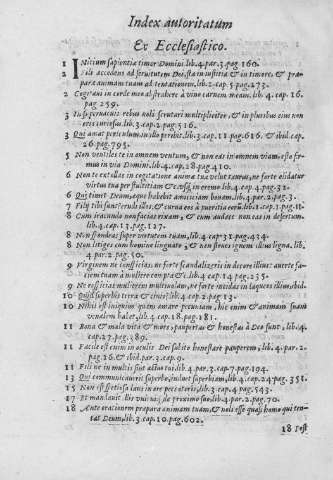 Index autoritatum
Ex Ecclesiastico.
1 INitium sapientia timor Domini. lib. 4. par. 3. pag. 160.
2 Fili accedens ad seruitutem Dei, sta in iustitia & in timore, & præ-
para animam tuam ad tentationem, lib. 2. cap. 5. pag. 273.
2 Cogitaui in corde meo abstrahere à vino carnem meam. lib. 4. cap. 16.
pag. 259.
3 In superuacuis rebus noli scrutari multipliciter, & in pluribus eius non
eris curiosus. lib. 3. cap. 2. pag. 516.
3 Qui amat periculum, in illo peribit. lib. 3. cap. 11. pag. 616. & ibid. cap.
26. pag. 795.
5 Non ventiles te in omnem ventum, & non eas in omnem viam, esto fir-
mus in via Domini, lib. 4. cap. 28. pag. 410.
6 Non te extollas in cogitatione animæ tuæ velut taurus, ne forte elidatur
virtus tua per stultitiam in eremo lib. 4. cap. 4. pag. 32.
6 Qui timet Deum, æque habebit amicitiam bonam, lib. 4. par. 2. pag. 3.
7 Filij tibi sunt? erudi illos, & curua eos à pueritia
8 Cum iracundo non facias rixam, & cum audace non eas in desertum.
lib. 4. cap. 13. pag. 127.
8 Non spondeas super virtutem tuam, lib. 4. cap. 31. pag. 434.
8 Non litiges cum homine linguato, & non strues in ignem illius ligna. lib.
4. par. 2. pag. 50.
9 Virginem ne conspicias, ne forte scandalizeris in decore illius: auerte fa-
ciem tuam à muliere compta lib. 4. cap. 14. pag. 235.
9 Ne respicias mulierem multiuolam, ne forte incidas in laqueos illius, ibid.
10 Quid superbis terra & cinis? lib. 4. cap. 2. pag. 13.
10 Nihil est iniquius quàm amare pecuniam, hic enim & animam suam
venalem habet, lib. 4. cap. 18. pag. 181.
11 Bona & mala vita & mors, paupertas & honestas à Deo sunt, lib. 4.
cap. 27. pag. 389.
11 Facile est enim in oculis Dei subito honestare pauperem, lib. 4. par. 2.
pag. 16. & ibid. par. 3. cap. 9.
11 Fili ne in multis sint actus tui. lib. 4. par. 3. cap. 7. pag. 194.
13 Qui communicauerit superbo, induet superbiam, lib. 4. cap. 24. pag. 351.
15 Non est speciosa laus in ore peccatoris, lib. 3. cap. 4. pag. 543.
17 Et mandauit illis vnicuique de proximo suo, lib. 4. par. 2. pag. 70.
18 Ante orationem præpara animam tuam, & noli esse quasi homo qui ten-
tat Deum, lib. 3. cap. 10. pag. 602.
18 Post